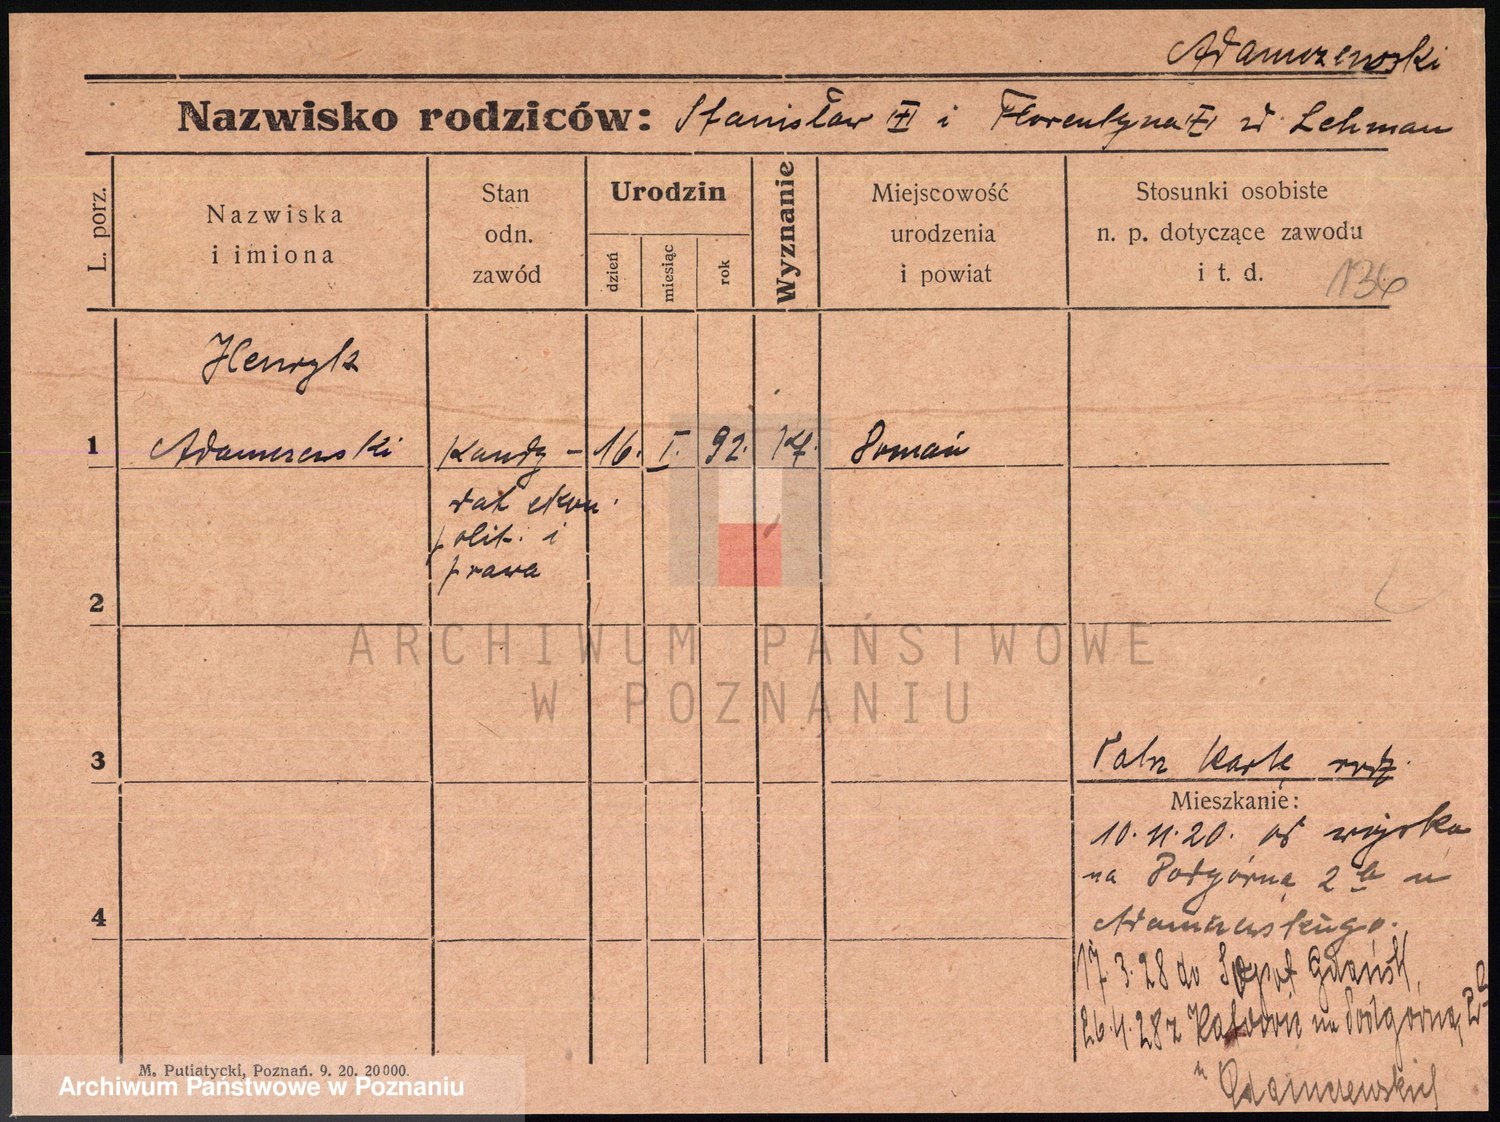 Adamczewski
Nazwisko rodziców: Stanisław i Florentyna z d. Lehman
L. porz.
Nazwiska
i imiona
Stan
odn.
zawód
Urodzin
dzień
miesiąc
rok
Wyznanie
Miejscowość
urodzenia
i powiat
Stosunki osobiste
n. p. dotyczące zawodu
i t. d.
136
Henryk
1 Adamczewski Kandy- 16. I. 92. Kt. Poznań
dat ekon.
polit. i
prawa
2
ARCHIWUM PAŃSTWOWE
W POZNANIU
3
Patrz kartę rodz.
Mieszkanie:
10.11.20. od wojska
na Podgórną 2 b u
4
Adamczewskiego.
17.3.28 do Sopot Gdańsk,
26.4.28 z Katowic na Podgórną 2
u Adamczewskich
M. Putiatycki, Poznań. 9. 20. 20000.
Archiwum Państwowe w Poznaniu